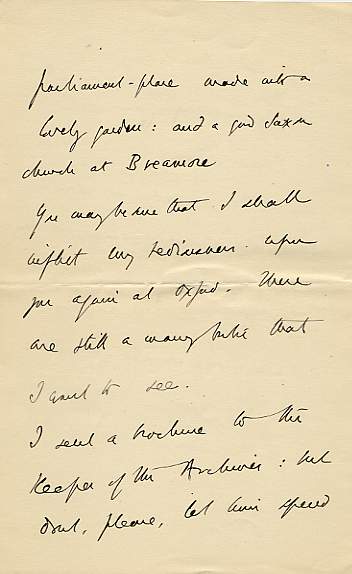 parliament-place made into a
lovely garden: and a good Saxon
church at Breamore
You may be sure that I shall
inflict my tediousness upon
you again at Oxford. There
are still a many that
I want to see.
I sent a brochure to the
Keeper of the Archives: but
don't, please, let him spend